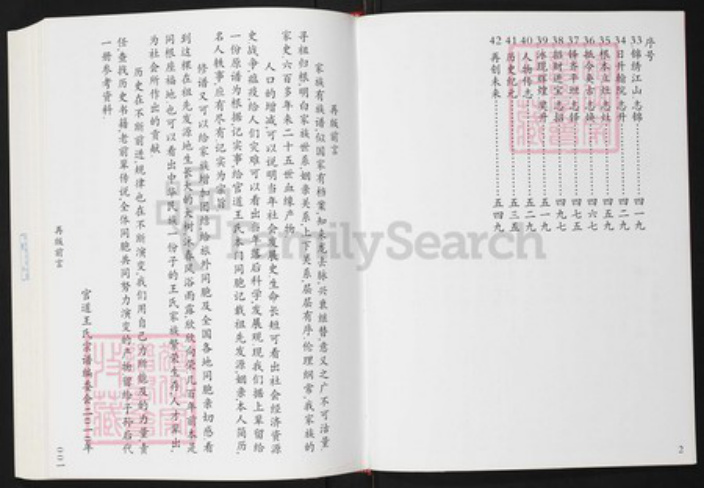 序号
33 锦绣江山 志锦 四一九
34 日升翰院 志升 四二九
35 根本立灶 志灶 四五九
36 抵今奂古 志焕 四六七
37 铎齐平坦 志铎 四七五
38 招财进宝 志招 四九七
39 冰现辉煌 奠升 五一九
40 人物传志 五二九
41 历史纪元 五三五
42 再创未来 五四九
2
再版前言
家族有族谱,似国家有档案,知来龙去脉,兴衰继替,意义之广不可估量
寻祖归根明白家族世系姻亲关系,上下关系届届有序,伦理纲常,我家族的
家史六百多年来二十五世血缘产物
人口的增减可以说明当年社会发展史,生命长短可看出社会经济资源
史战争瘟疫,给人们灾难可以看出当年落后科学,发展观,现我们据上辈留给
一份原谱为根据,记实事,给官道王氏本门同胞记载祖先发源,姻亲,本人简历,
名人轶事,应有尽有,记实为宗旨
修谱又可以给家族增加团结,给根外同胞及全国各地同胞亲切感看
到这棵在祖先发源地生长大的大树沐春风浴雨露,欣欣向荣几百年前本是
同根座福地,也可以看出中华民族一份子的王氏家族繁荣生存,人才辈出,
为社会所作出的贡献
历史在不断前进,规律也在不断演变,我们用自己力所能及的力量责
任,查找历史书籍,老前辈传说,全体同胞共同努力演变的产物留给子孙后代
一册参考资料
官道王氏宗谱编委会二〇一三年
再版前言
FamilySearch